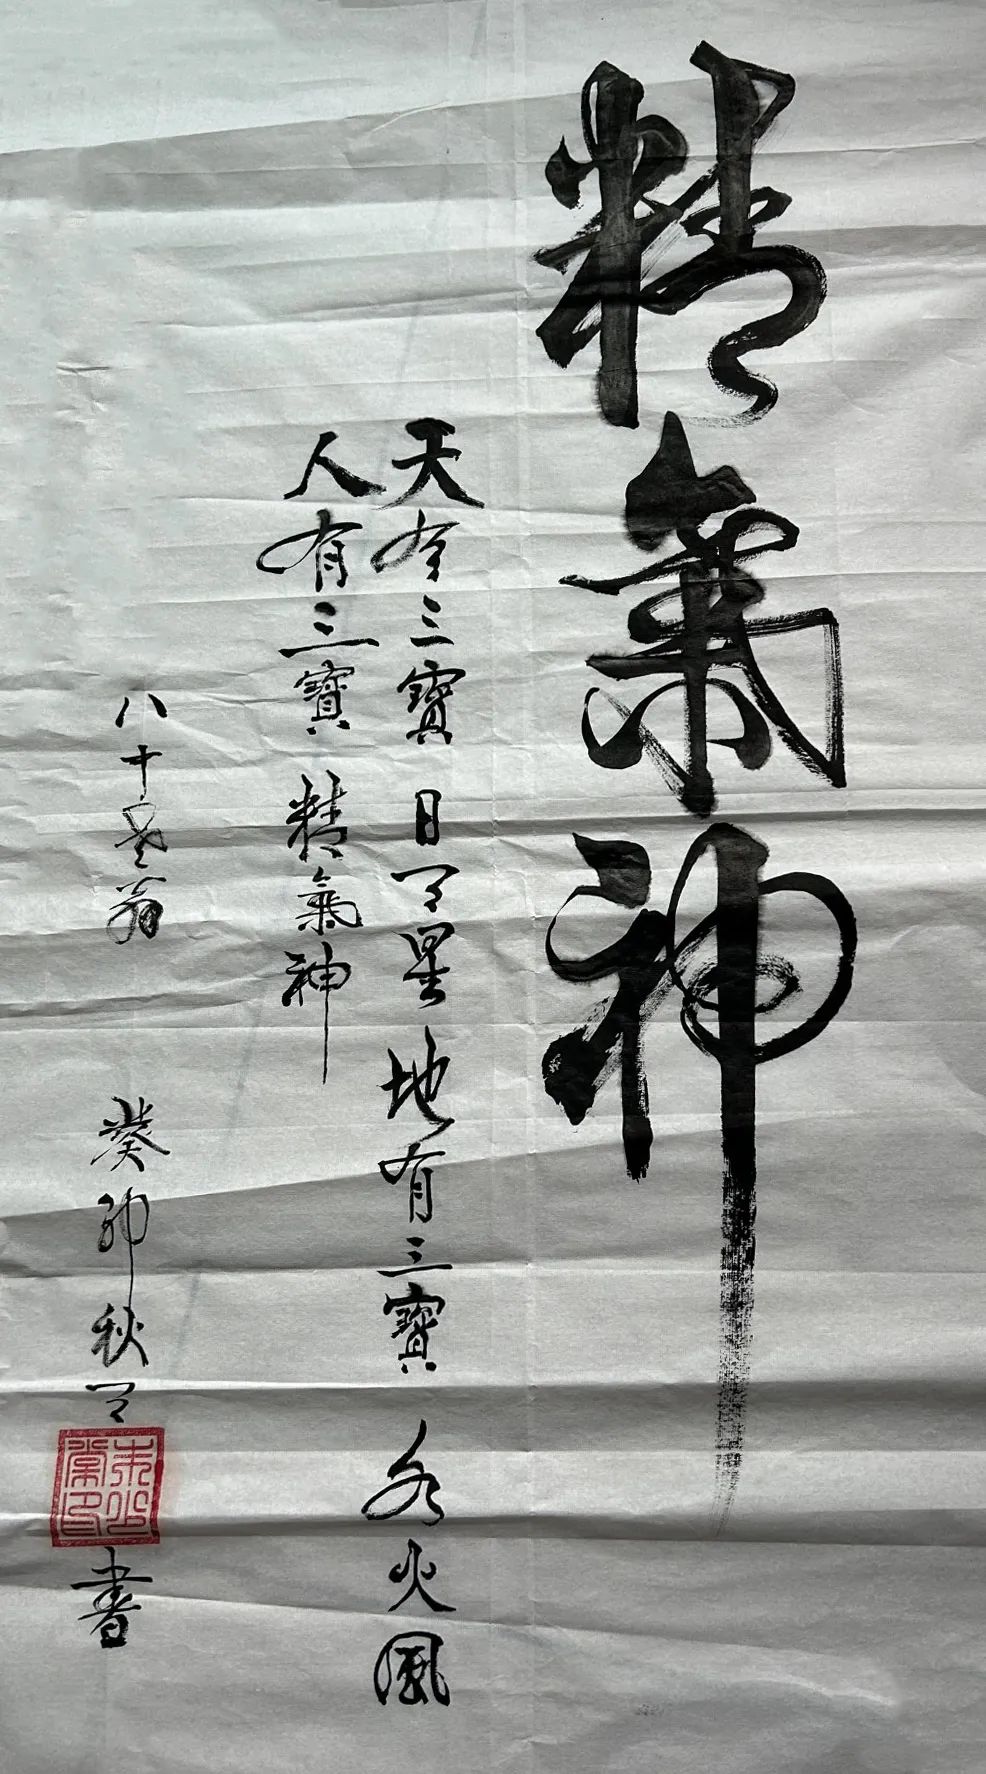 精氣神
天有三寶 日月星 地有三寶 水火風
人有三寶 精氣神
八十翁 癸卯秋月
書